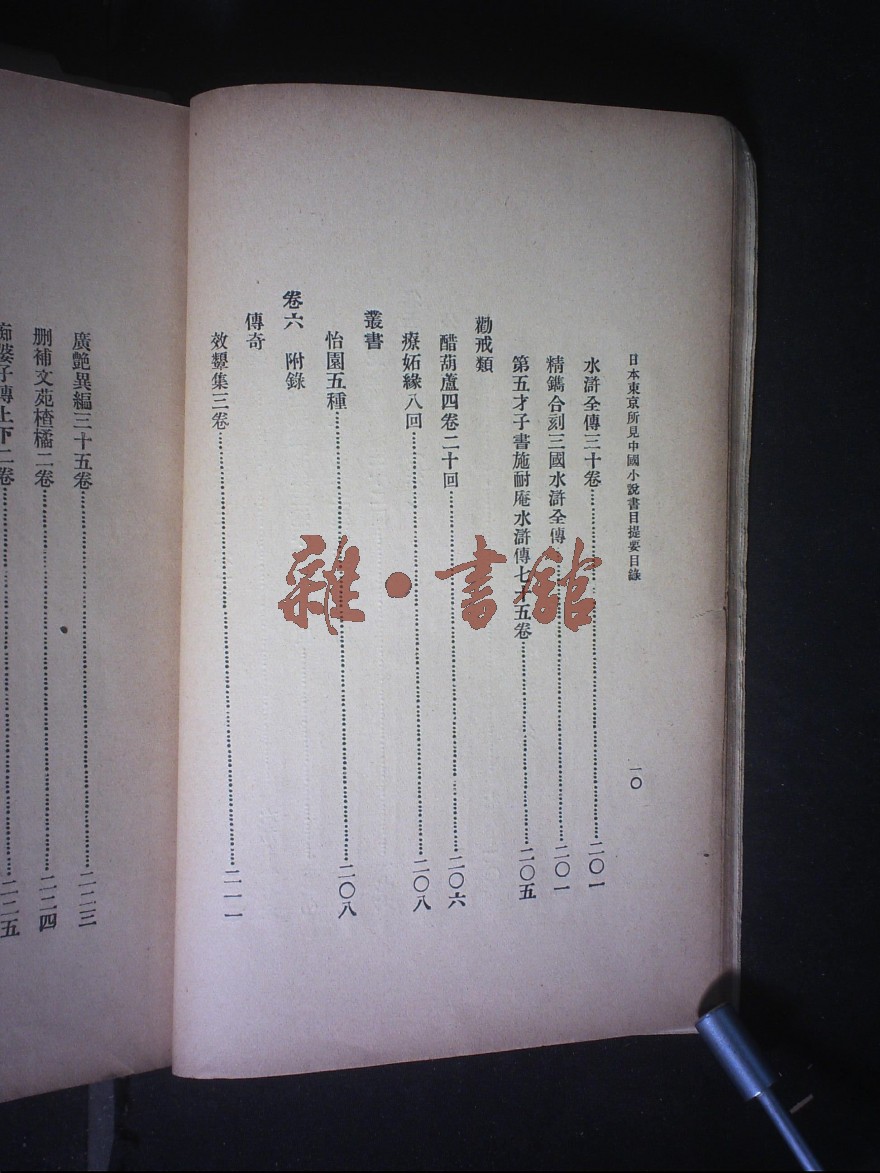 日本東京所見中國小說書目提要目錄 一〇
水滸全傳三十卷……二〇一
精鐫合刻三國水滸全傳……二〇一
第五才子書施耐庵水滸傳七十五卷……二〇五
勸戒類
醋葫蘆四卷二十回……二〇六
療妬緣八回……二〇八
叢書
怡園五種……二〇八
卷六 附錄
傳奇
效顰集三卷……二一一
廣艶異編三十五卷……二二三
刪補文苑楂橘二卷……二二四
痴婆子傳上下二卷……二二五
雜·書館